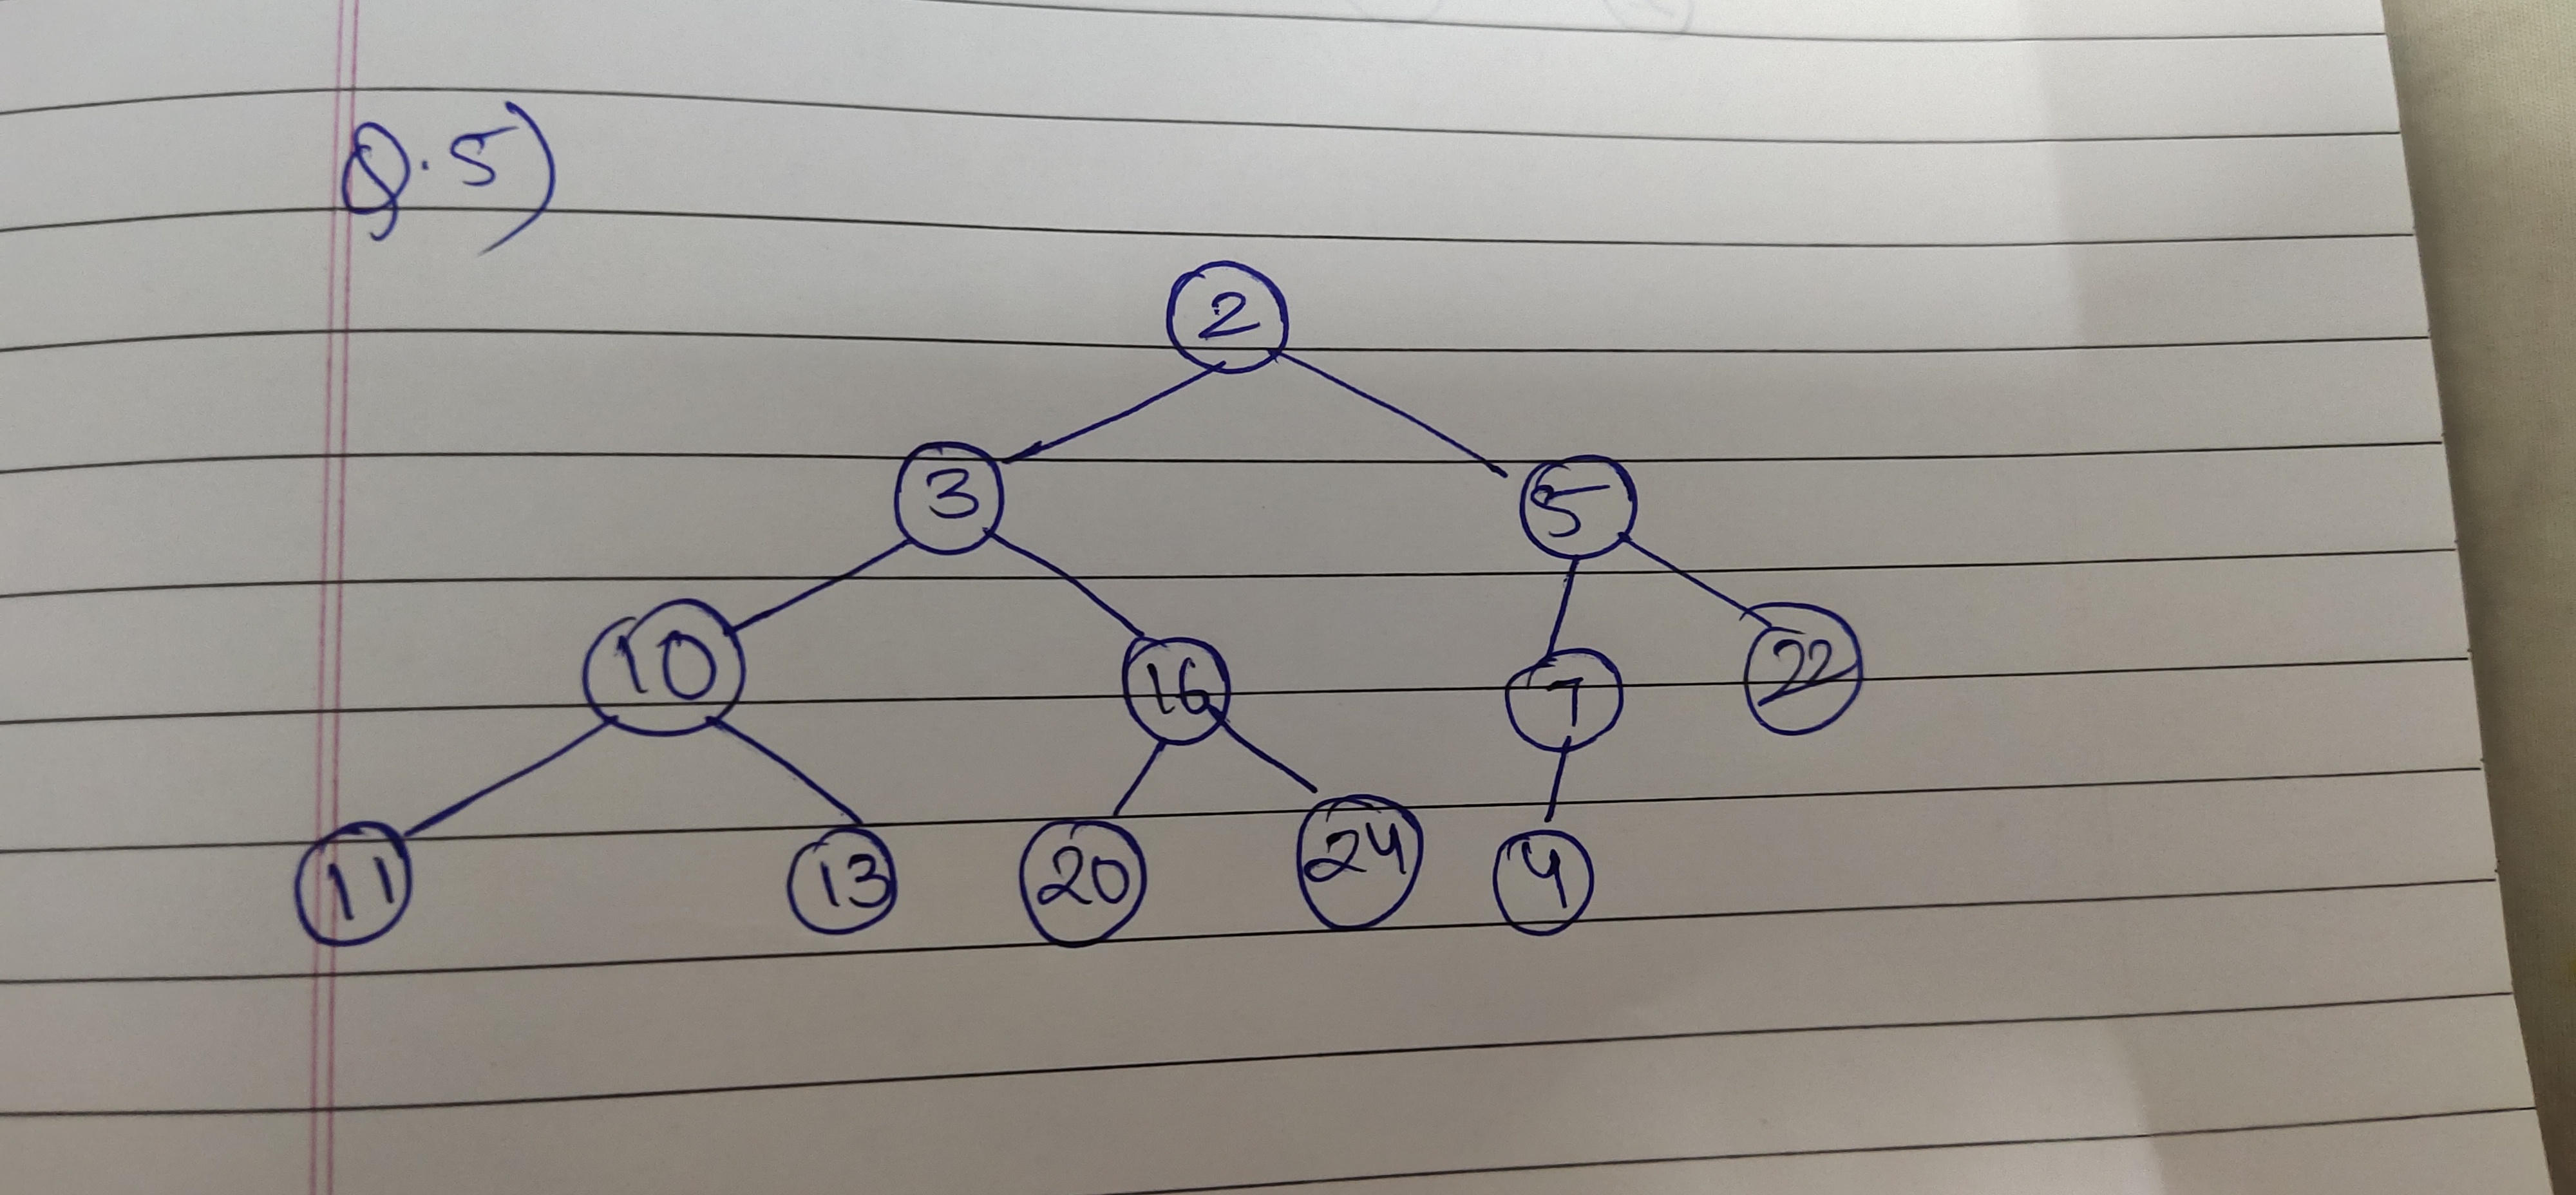 Q.5)
2
3 5
10 16 7 22
11 13 20 24 4